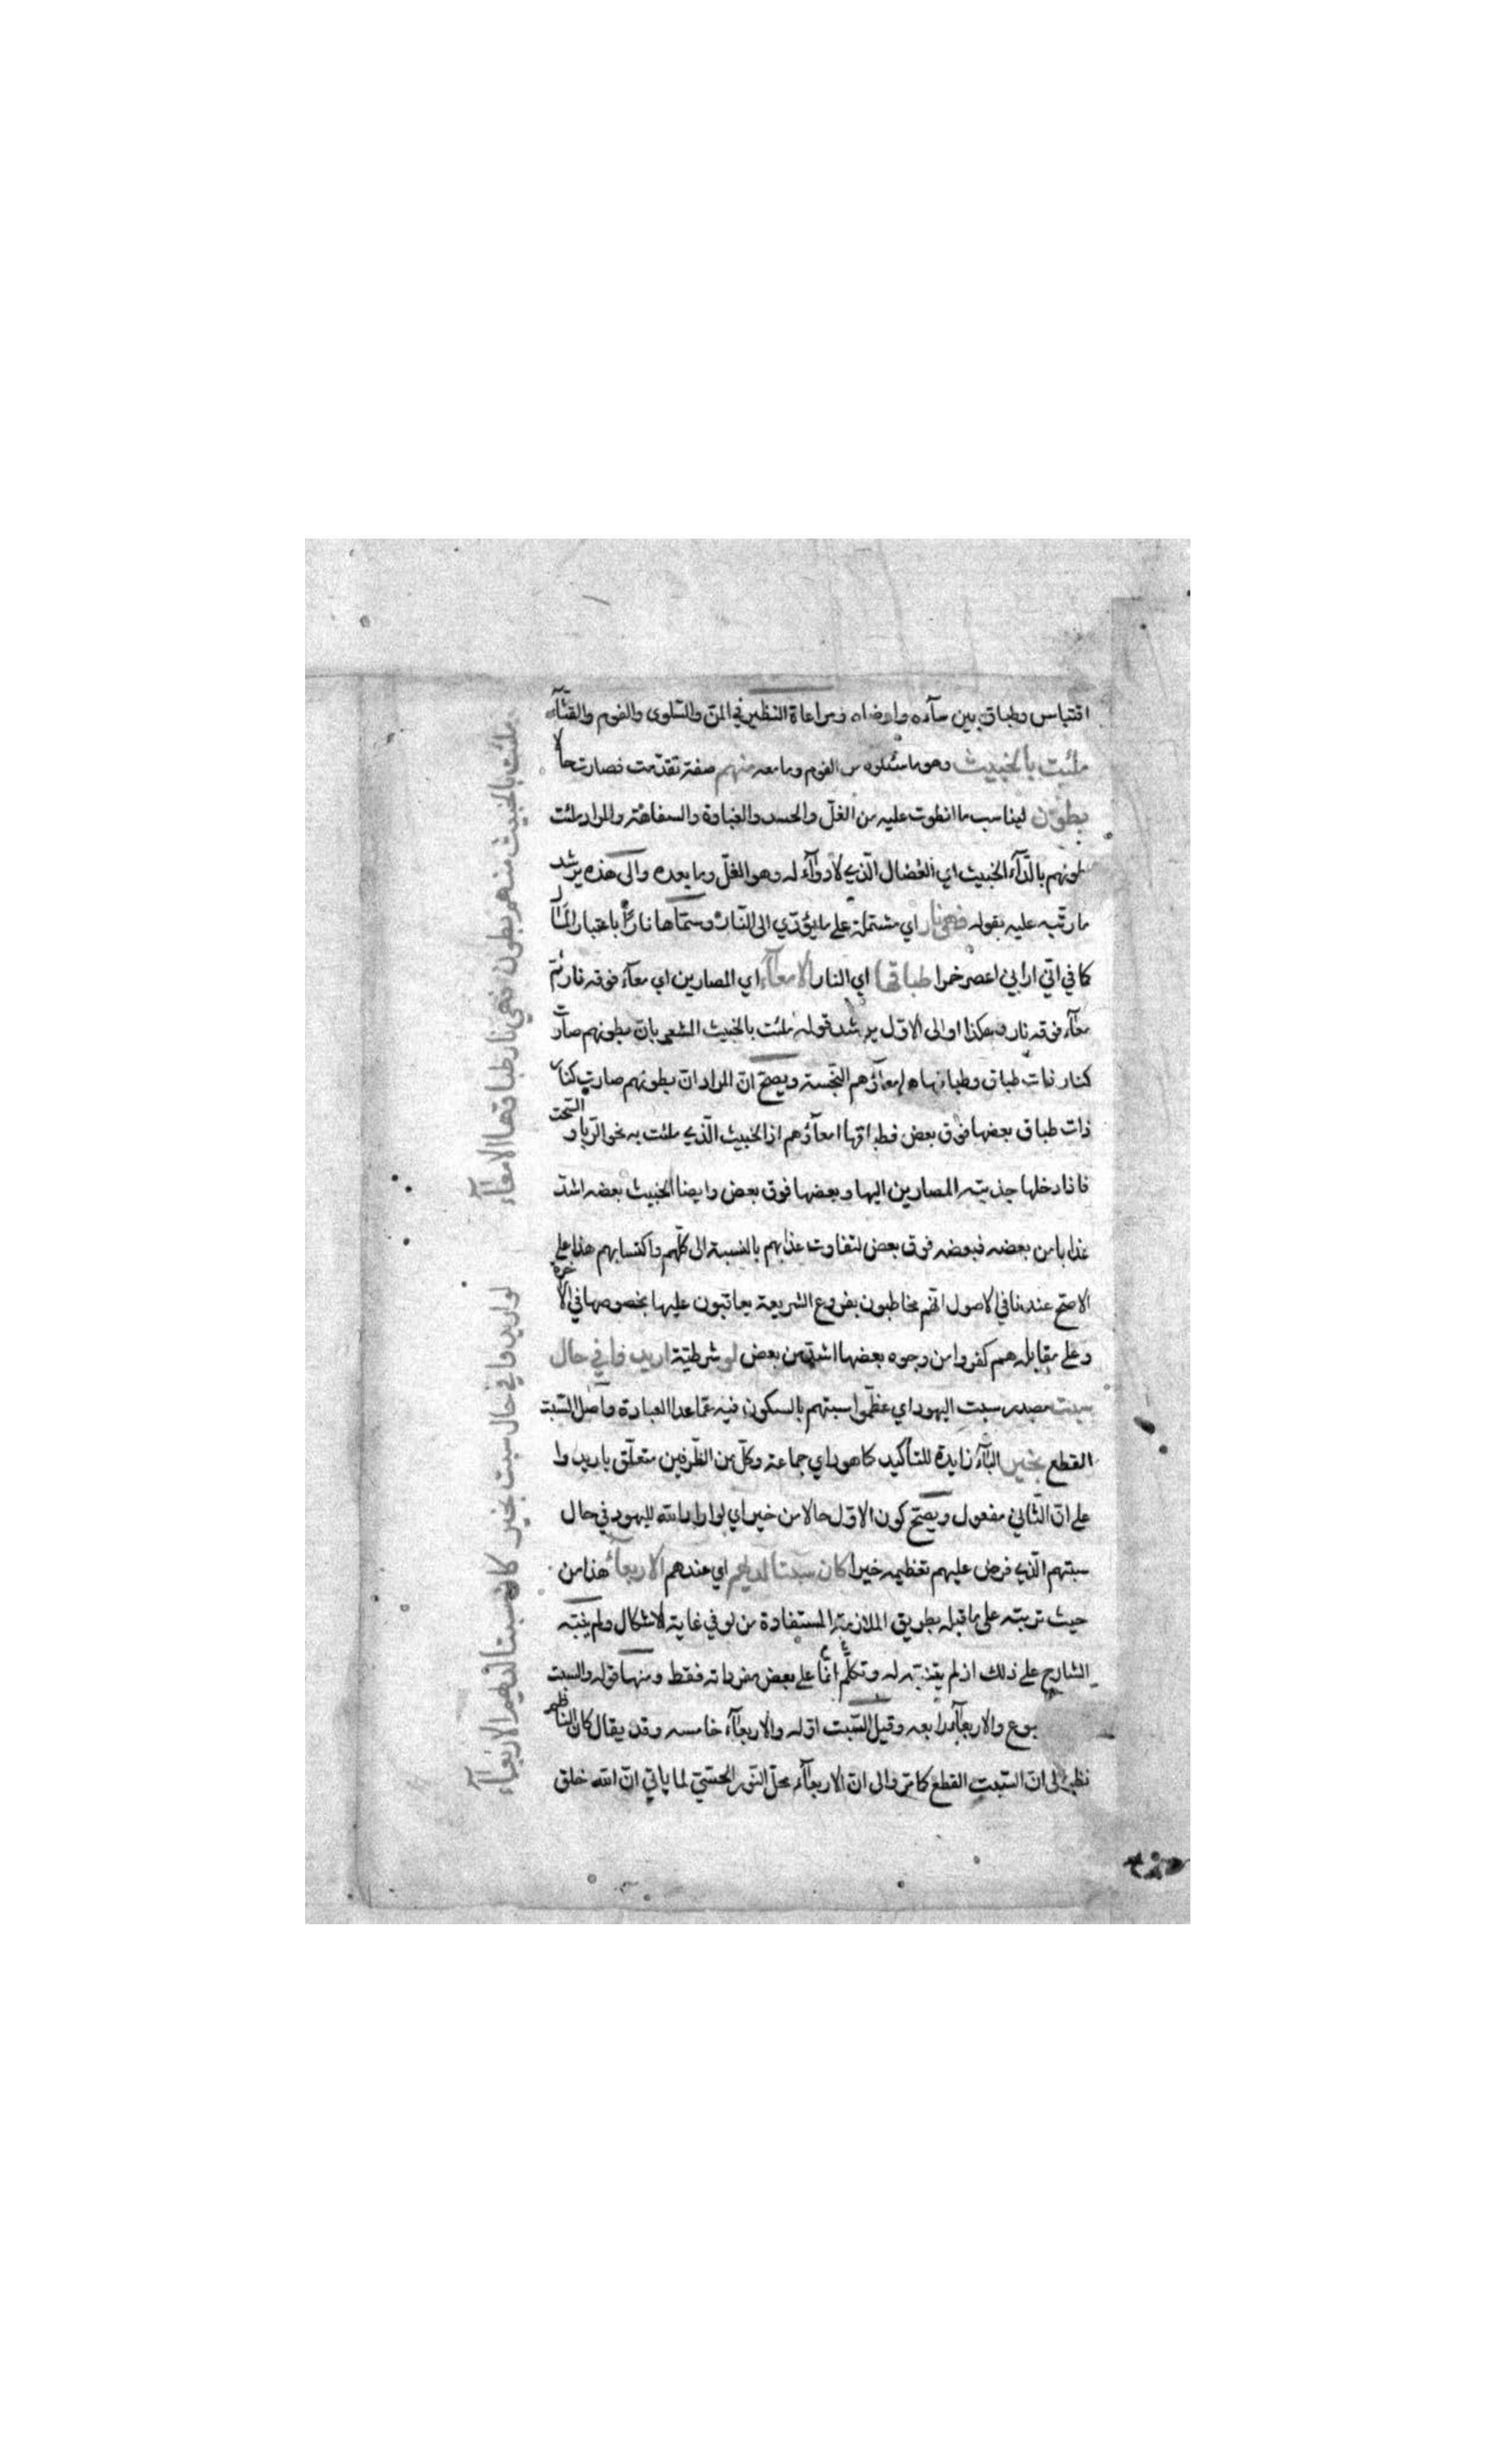 اقتباس وطباق بين ساءه وارضاه ومراعاة النظير في المن والسلوى والفوم والقثآء
ملئت بالخبيث وهو ما سئلوه من الفوم وما معه منهم صفة تقدمت فصارت حالا
بطون ليناسب ما انطوت عليه من الغل والحسد والغباوة والسفاهة والمراد ملئت
بطونهم بالدآء الخبيث اي العضال الذي لا دوآء له وهو الغل وما بعده والى هذه يرشد
ما رتبه عليه بقوله فهي نار اي مشتملة على ما يؤدي الى النار وسماها نارا باعتبار المآل
كما في اني اراني اعصر خمرا طباقها اي النار الامعآء اي المصارين اي معآء فوقه نار ثم
معآء فوقه نار وهكذا او الى الاول يرشد قوله ملئت بالخبيث المشعر بان بطونهم صارت
كنار ذات طباق وطباقها امعآؤهم النجسة ويصح ان المراد ان بطونهم صارت كنار
ذات طباق بعضها فوق بعض فطباقها امعآؤهم اذ الخبيث الذي ملئت به نحو الربا والسحت
فاذا دخلها جذبته المصارين اليها وبعضها فوق بعض وايضا الخبيث بعضه اشد
عذابا من بعضه فبعضه فوق بعض لتفاوت عذابهم بالنسبة الى كلهم واكتسابهم هذا على
الاصح عندنا في الاصول انهم مخاطبون بفروع الشريعة يعاقبون عليها بخصوصها في الاخرة
وعلى مقابله هم كفروا من وجوه بعضها اشد من بعض لو شرطية اريدوا في حال
سبت مصدر سبت اليهود اي عظموا سبتهم بالسكون فيه عما عدا العبادة واصل السبت
القطع بخير البآء زايدة للتأكيد كما هو راي جماعة وكل من الظرفين متعلق باريدوا
على ان الثاني مفعول ويصح كون الاول حالا من خير اي لو اراد الله لليهود في حال
سبتهم الذي فرض عليهم تعظيمه خيرا كان سبتا لديهم اي عندهم الاربعآء هذا من
حيث تربته على ما قبله بطريق الملازمة المستفادة من لو في غاية الاشكال ولم ينبه
الشارح على ذلك اذ لم يتنبه له وتكلم انما على بعض مفرداته فقط ومنها قوله والسبت
بوع والاربعآء رابعه وقيل السبت اوله والاربعآء خامسه وقد يقال كان الناظم
نظر الى ان السبت القطع كما مر والى ان الاربعآء محل النور الحسي لما ياتي ان الله خلق
ملئت بالخبيث منهم بطون فهي نار طباقها الامعآء
لو اريدوا في حال سبت بخير كان سبتا لديهم الاربعآء